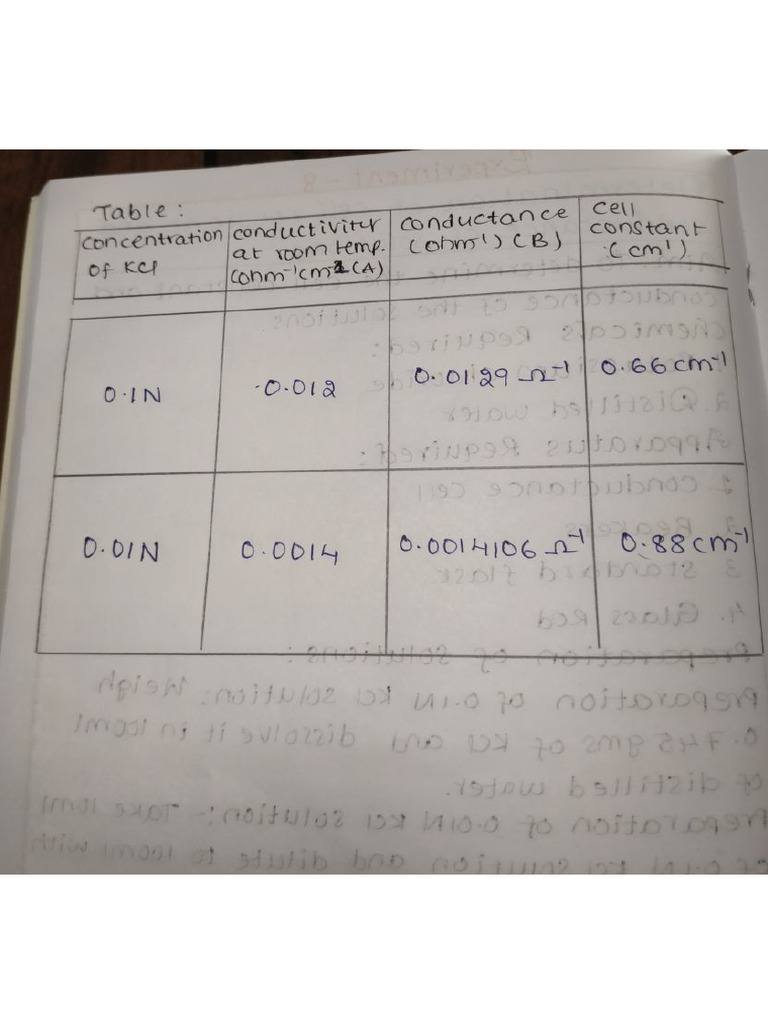 Table :
concentration of KCl
conductivity at room temp. (ohm⁻¹cm⁻¹ (A)
conductance (ohm⁻¹) (B)
cell constant (cm⁻¹)
0.1N
0.012
0.0129 Ω⁻¹
0.66 cm⁻¹
0.01N
0.0014
0.0014106 Ω⁻¹
0.88 cm⁻¹